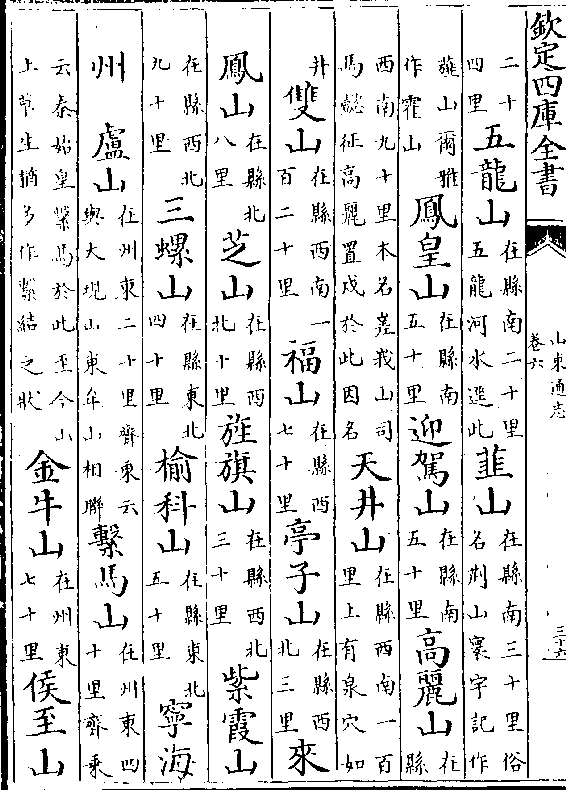 欽定四庫全書
山東通志
卷六
三十六
二十四里五龍山在縣南二十里五龍河水逕此韭山在縣南三十里俗名荆山寰宇記作
蕹山爾雅作霍山鳳皇山在縣南五十里迎駕山在縣南五十里高麗山在縣
西南九十里本名嵳莪山司馬懿征高麗置戍於此因名天井山在縣西南一百里上有泉穴如
井雙山在縣西南一百二十里福山在縣西七十里亭子山在縣西北三里來
鳳山在縣北八里芝山在縣西北十里旌旗山在縣西北三十里紫霞山
在縣西北九十里三螺山在縣東北四十里榆科山在縣東北五十里寧海
州盧山在州東二十里齊東云與大堄山東牟山相聯繫馬山在州東四十里齊乘
云秦始皇繫馬於此至今山上草生猶多作繫結之狀金牛山在州東七十里侯至山